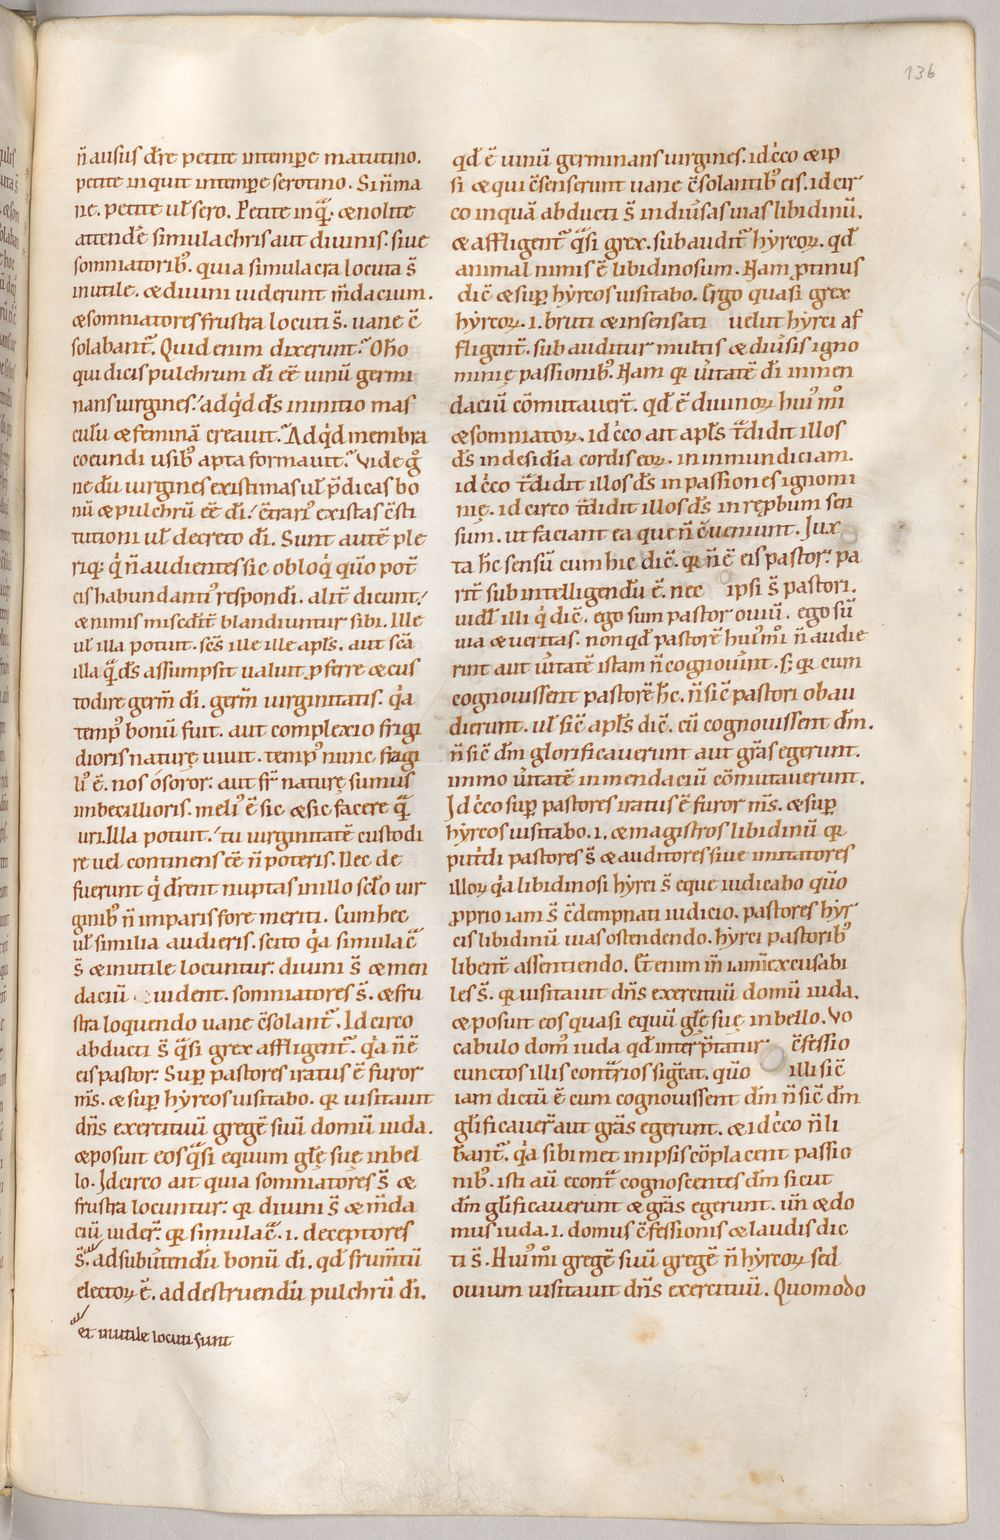 136
n̄ ausus dr̄e petite in tempore matutino.
petite inquit in tempore serotino. Si n̄ ma
ne. petite ul̄ sero. Petite inq̄. & nolite
attendē simulachris aut diuinis. siue
somniatoribꝰ. quia simulacra locuta s̄
inutile. & diuini uiderunt m̄dacium.
& somniatores frustra locuti s̄. uane c̄
solabant̄. Quid enim dixerunt? Oho
qui dicis pulchrum dī eē uinū germi
nans uirgines. ad qd̄ ds̄ in initio mas
culū & feminā creauit? Ad qd̄ membra
coeundi usibꝰ apta formauit? Vide g̊
ne dū uirgines existimas ul̄ p̄dicas bo
nū & pulchrū eē dī. c̄trariꝰ existas c̄sti
tutioni ul̄ decreto dī. Sunt autē ple
riq; q̇ n̄ audientes sic obloq̇ quō pot̄
eis habundantiꝰ respondi. alit̄ dicunt.
& nimis miscd̄it̄ blandiuntur sibi. Ille
ul̄ illa potuit. scs̄ ille ille apls̄. aut scā
illa q̄ ds̄ assumpsit ualuit ꝓferre & cus
todire germ̄ dī. germ̄ uirginitatis. q̇a
tempꝰ bonū fuit. aut complexio frigi
dioris naturę uiuit. tempꝰ nunc fragi
lꝰ ē. nos o soror: aut fr̄ naturę sumus
imbecillioris. meliꝰ ē sic & sic facere q̄
uri. Illa potuit. tu uirginitatē custodi
re uel continens eē n̄ poteris. Nec de
fuerunt q̇ dr̄ent nuptas in illo sclo uir
ginibꝰ n̄ imparis fore meriti. Cum hec
ul̄ similia audieris. scito q̇a simulac̄
s̄ & inutile locuntur: diuini s̄ & men
daciū uident. somniatores s̄. & fru
stra loquendo uane c̄solant̄. Idcirco
abducti s̄ q̄si grex affligent̄. q̇a n̄ ē
eis pastor: Suꝑ pastores iratus ē furor
ms̄. & suꝑ hẏrcos uisitabo. qꝛ uisitauit
dn̄s exercituū gregē suū domū iuda.
& posuit eos q̄si equum glę̄ suę in bel
lo. Idcirco ait quia somniatores s̄ &
frustra locuntur: qꝛ diuini s̄ & m̄da
ciū uider̄. qꝛ simulac̄. i. deceptores
s̄. ad subūtendū bonū dī. qd̄ frum̄tū
electoꝝ ē. ad destruendū pulchrū dī.
et inutile locuti sunt
qd̄ ē uinū germinans uirgines. idc̊co & ip
si & qui c̄senserunt uane c̄solantibꝰ eis. idcir
co inquā abducti s̄ in diūsas uias libidinū.
& affligent̄ q̄si grex. subaudit̄ hẏrcoꝝ. qd̄
animal nimis ē libidinosum. Nam ꝓtinus
dic̄ & suꝑ hẏrcos uisitabo. Ergo quasi grex
hẏrcoꝝ. i. bruti & insensati uelut hẏrci af
fligent̄. subauditur multis & diūsis igno
minię passionibꝰ. Nam qꝛ ūitatē dī in men
daciū cōmutauer̄t. qd̄ ē diuinoꝝ huiꝰmī
& somniatoꝝ. idc̊co ait apls̄ t̄didit illos
ds̄ in desid̄ia cordis eoꝝ. in inmundiciam.
idc̊co t̄didit illos ds̄ in passiones ignomi
nię. idcirco t̄didit illos ds̄ in repbum sen
sum. ut faciant ea que n̄ c̄ueniunt. Jux
ta hc̄ sensū cum hic dic̄. qꝛ n̄ ē eis pastor: pa
rit̄ subintelligendū ē. nec ipsi s̄ pastori.
uidl̄ illi q̇ dic̄. ego sum pastor ouiū. ego sū
uia & ueritas. non qd̄ pastorē huiꝰmī n̄ audie
rint aut ūitatē istam n̄ cognoūint. s; qꝛ cum
cognouissent pastorē hc̄. n̄ sic̄ pastori obau
dierunt. ul̄ sic̄ apls̄ dic̄. cū cognouissent dm̄.
n̄ sic̄ dm̄ glorificauerunt aut grās egerunt.
immo ūitatē in mendaciū cōmutauerunt.
Idc̊co suꝑ pastores iratus ē furor ms̄. & suꝑ
hẏrcos uisitabo. i. & magistros libidinū qꝛ
putidi pastores s̄ & auditores siue imitatores
illoꝝ q̇a libidinosi hẏrci s̄ eque iudicabo quō
ꝓprio iam s̄ c̄dempnati iudicio. pastores hẏr
cis libidinū uias ostendendo. hẏrci pastoribꝰ
libent̄ assentiendo. Etenim in iam inexcusabi
les s̄. qꝛ uisitauit dn̄s exercituū domū iuda.
& posuit eos quasi equū glę̄ suę in bello. Vo
cabulo domꝰ iuda qd̄ interp̄tatur c̄fessio
cunctos illis cont̄rios sig̅cat. quō illi sic̄
iam dictū ē cum cognouissent dm̄ n̄ sic̄ dm̄
gl̄ificauer̄ aut grās egerunt. & idc̊co n̄ li
b̄ant̄. q̇a sibimet in ipsis cōplacent passio
nibꝰ. isti aū econt̄ cognoscentes dm̄ sicut
dm̄ gl̄ificauerunt & grās egerunt. un̄ & do
mus iuda. i. domus c̄fessionis & laudis dic
ti s̄. Huiꝰmī gregē suū gregē n̄ hẏrcoꝝ sed
ouium uisitauit dn̄s exercituū. Quomodo